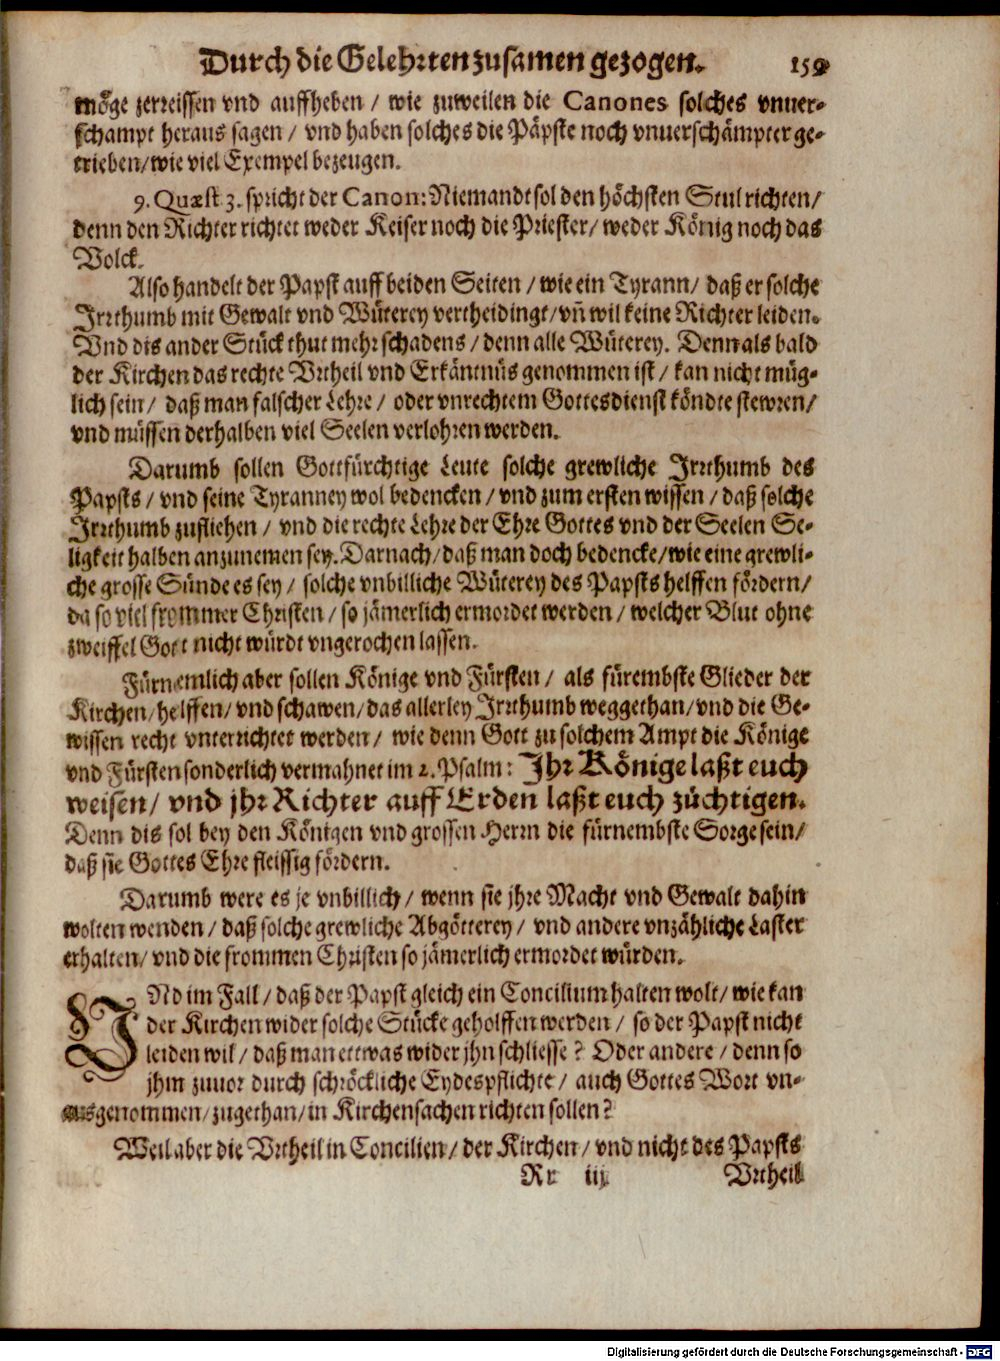 Durch die Gelehrten zusamen gezogen. 159
möge zerreissen vnd auffheben / wie zuweilen die Canones solches vnuer-
schampt heraus sagen / vnd haben solches die Päpste noch vnuerschämpter ge-
trieben / wie viel Exempel bezeugen.
9. Quæst 3. spricht der Canon: Niemandt sol den höchsten Stul richten /
denn den Richter richtet weder Keiser noch die Priester / weder König noch das
Volck.
Also handelt der Papst auff beiden Seiten / wie ein Tyrann / daß er solche
Irrthumb mit Gewalt vnd Wüterey vertheidingt / vñ wil keine Richter leiden.
Vnd dis ander Stück thut mehr schadens / denn alle Wüterey. Denn als bald
der Kirchen das rechte Vrtheil vnd Erkäntnüs genommen ist / kan nicht müg-
lich sein / daß man falscher Lehre / oder vnrechtem Gottesdienst köndte stewren /
vnd müssen derhalben viel Seelen verlohren werden.
Darumb sollen Gottfürchtige Leute solche grewliche Irrthumb des
Papsts / vnd seine Tyranney wol bedencken / vnd zum ersten wissen / daß solche
Irrthumb zufliehen / vnd die rechte Lehre der Ehre Gottes vnd der Seelen Se-
ligkeit halben anzunemen sey. Darnach / daß man doch bedencke / wie eine grewli-
che grosse Sünde es sey / solche vnbilliche Wüterey des Papsts helffen fördern /
da so viel frommer Christen / so jämerlich ermordet werden / welcher Blut ohne
zweiffel Gott nicht würdt vngerochen lassen.
Fürnemlich aber sollen Könige vnd Fürsten / als fürembste Glieder der
Kirchen / helffen / vnd schawen / das allerley Irrthumb weggethan / vnd die Ge-
wissen recht vnterrichtet werden / wie denn Gott zu solchem Ampt die Könige
vnd Fürsten sonderlich vermahnet im 2. Psalm: Ihr Könige laßt euch
weisen / vnd jhr Richter auff Erden laßt euch züchtigen.
Denn dis sol bey den Königen vnd grossen Herrn die fürnembste Sorge sein /
daß sie Gottes Ehre fleissig fördern.
Darumb were es je vnbillich / wenn sie jhre Macht vnd Gewalt dahin
wolten wenden / daß solche grewliche Abgötterey / vnd andere vnzähliche Laster
erhalten / vnd die frommen Christen so jämerlich ermordet würden.
VNd im Fall / daß der Papst gleich ein Concilium halten wolt / wie kan
der Kirchen wider solche Stücke geholffen werden / so der Papst nicht
leiden wil / daß man ettwas wider jhn schliesse? Oder andere / denn so
jhm zuuor durch schröckliche Eydespflichte / auch Gottes Wort vn-
ausgenommen / zugethan / in Kirchensachen richten sollen?
Weil aber die Vrtheil in Concilien / der Kirchen / vnd nicht des Papsts
Rr iij Vrtheil
Digitalisierung gefördert durch die Deutsche Forschungsgemeinschaft - DFG